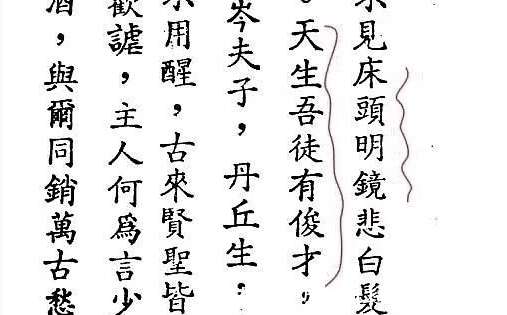 見床頭明鏡悲白髮
。天生吾徒有俊才，
岑夫子，丹丘生
用醒，古來賢聖皆
歡謔，主人何爲言少
酒，與爾同銷萬古愁